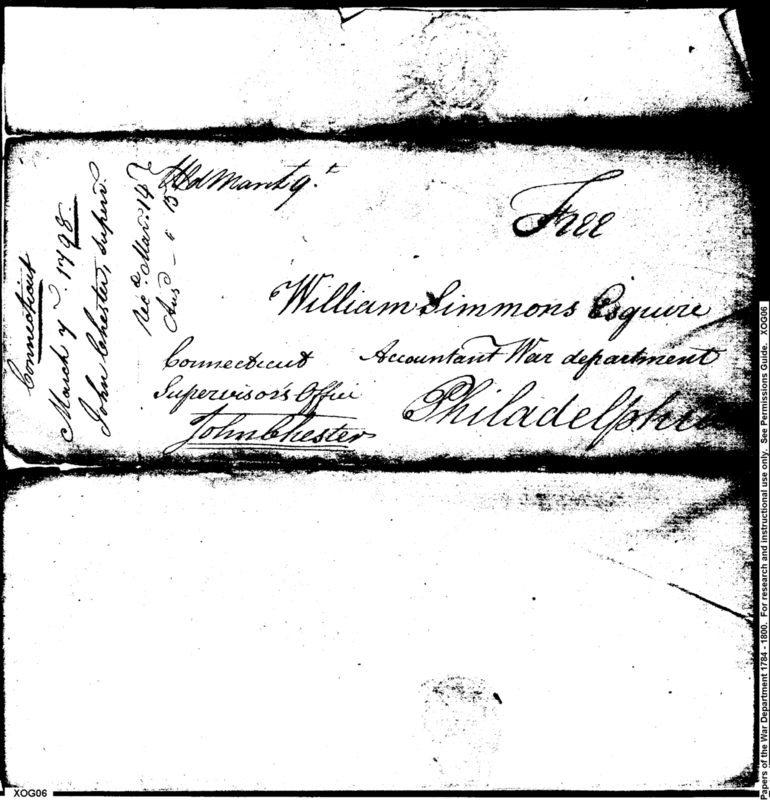 Connecticut
March 7th. 1798.
John Chester, Superv.
Recd. Mar: 14
Ans - " 15
Hd March 9t
Free
William Simmons Esquire
Connecticut Accountant War department
Supervisor's Office Philadelphia
John Chester
Papers of the War Department 1784 - 1800. For research and instructional use only. See Permissions Guide. XOG06
XOG06